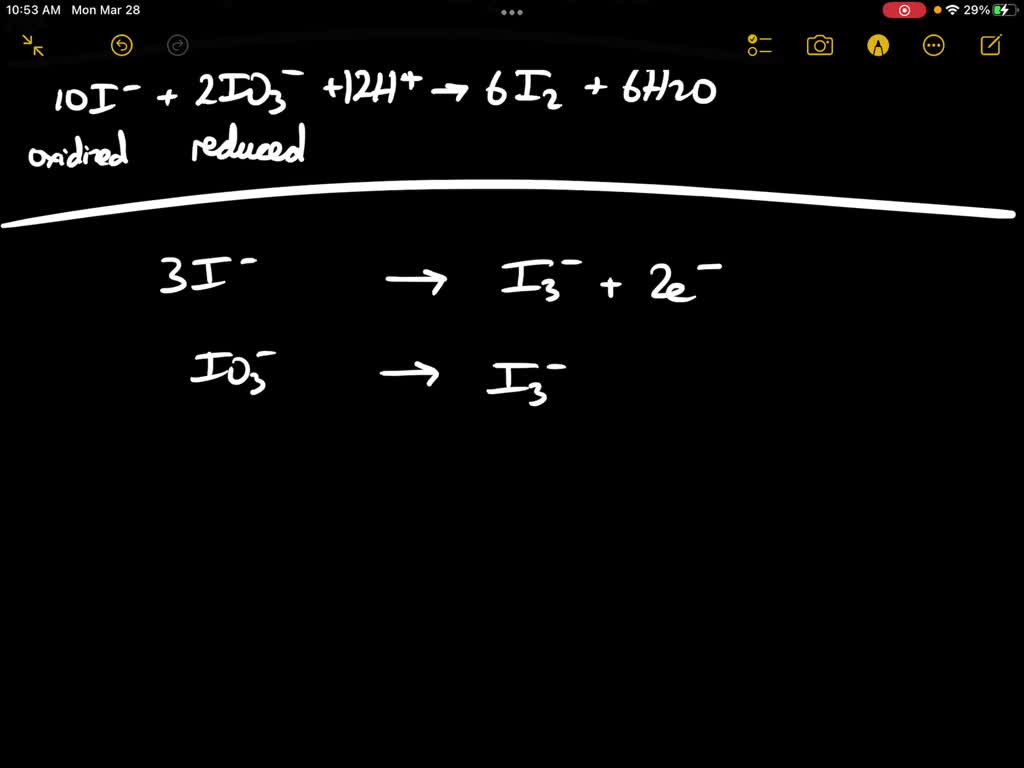 10:53 AM Mon Mar 28 29%
10I⁻ + 2IO₃⁻ +12H⁺ → 6I₂ + 6H2O
oxidized reduced
3I⁻ → I₃⁻ + 2e⁻
IO₃⁻ → I₃⁻